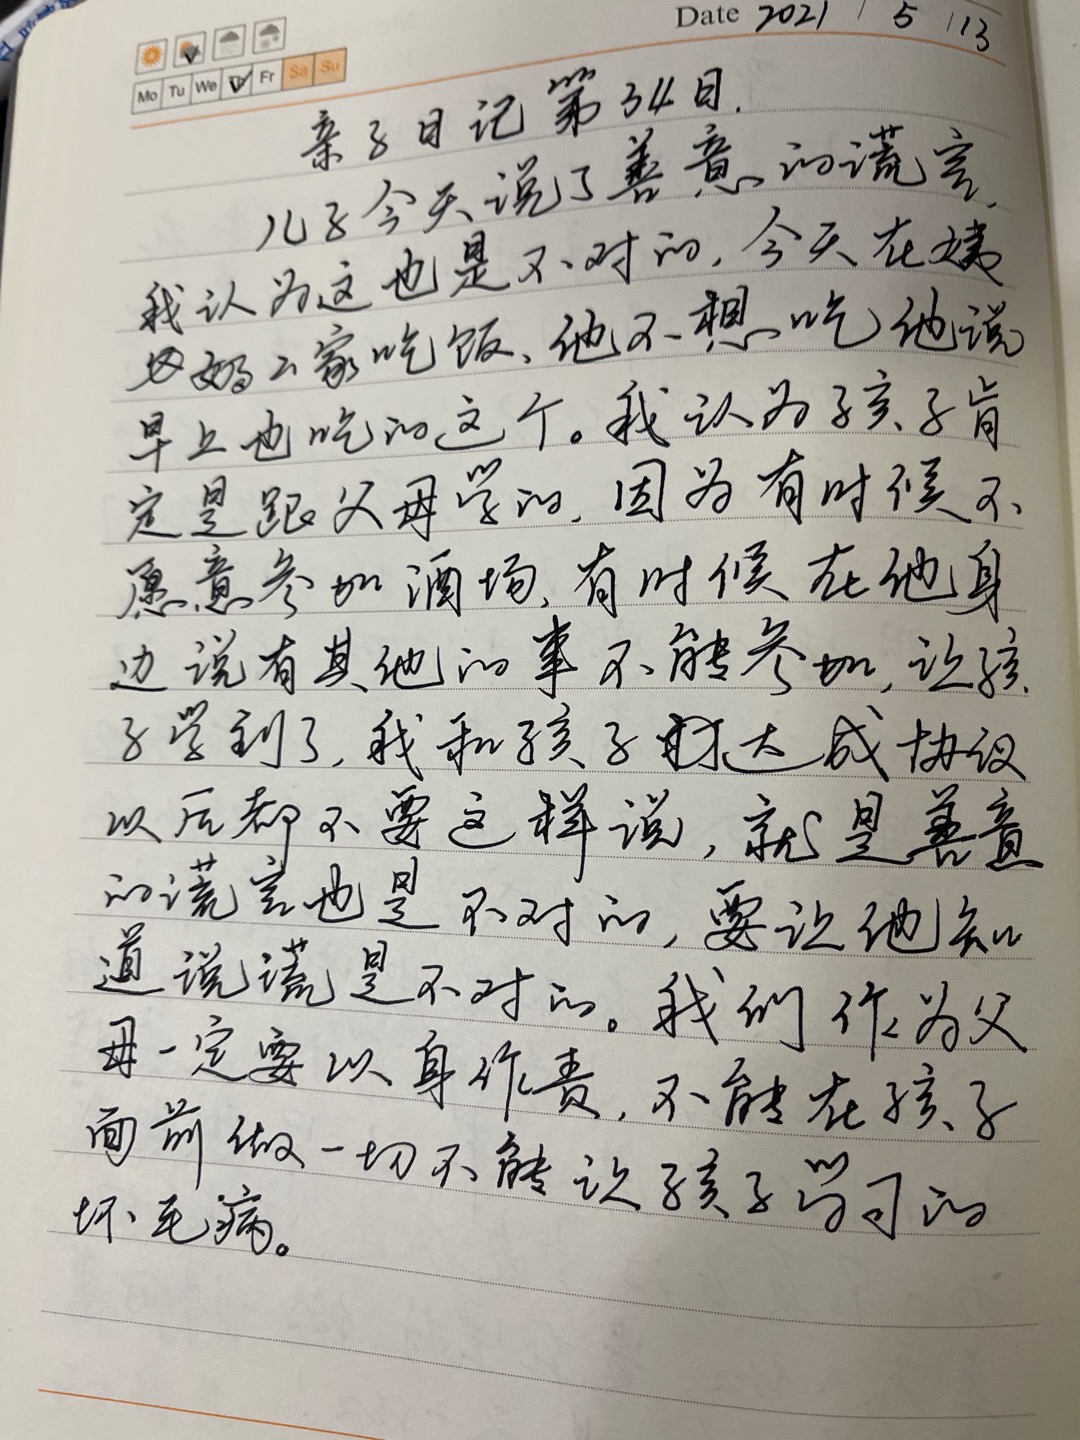 Date 2021 / 5 / 13
Mo Tu We Th Fr Sa Su
亲子日记第34日.
儿子今天说了善意的谎言,
我认为这也是不对的,今天在姨
奶奶家吃饭、他不想吃他说
早上也吃的这个。我认为孩子肯
定是跟父母学的,因为有时候不
愿意参加酒场,有时候在他身
边说有其他的事不能参加,让孩
子学到了,我和孩子达成协议
以后都不要这样说,就是善意
的谎言也是不对的,要让他知
道说谎是不对的。我们作为父
母一定要以身作责,不能在孩子
面前做一切不能让孩子学习的
坏毛病。